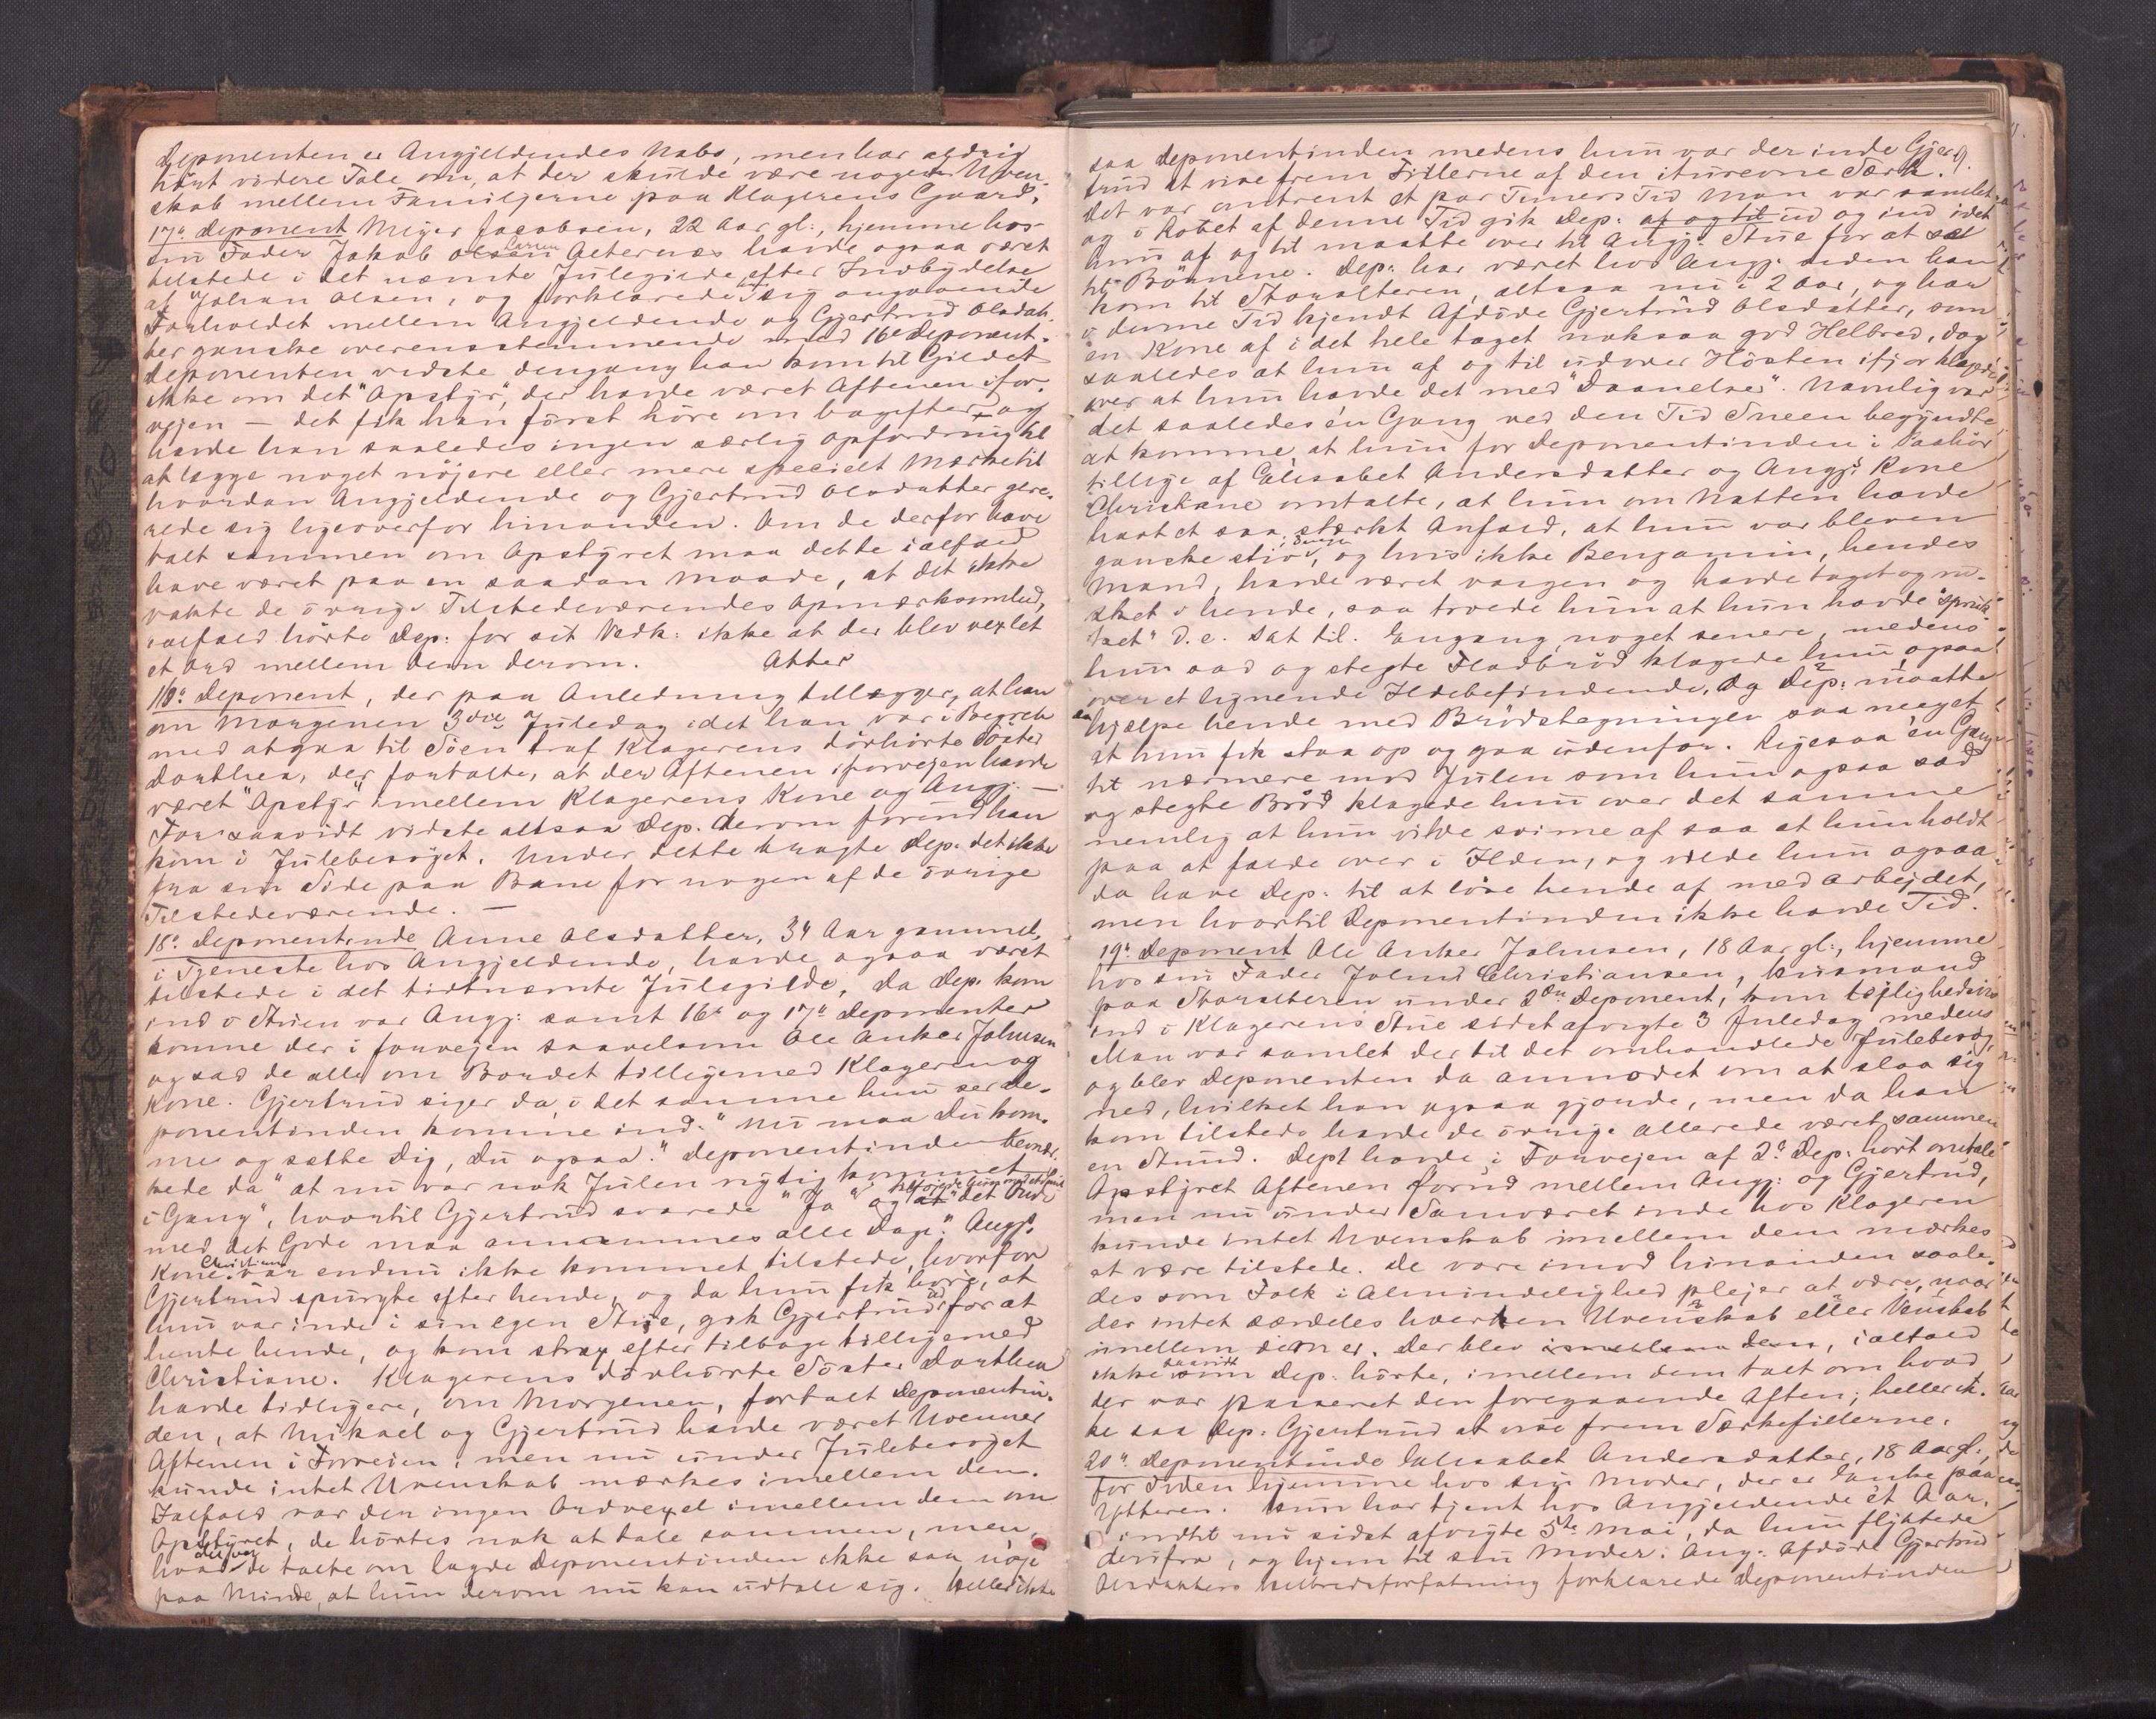 Deponenten er Angjeldendes Nabo, men har aldrig
hørt videre Tale om, at der skulde være nogen Uven-
skab mellem Familjerne paa Klagerens Gaard.
17de Deponent Meyer Jacobsen, 22 Aar gl., hjemme hos
sin Fader Jakob Olsen Larsen Aeternæs havde ogsaa været
tilstede i det nævnte Julegilde efter Indbydelse
af Johan Olsen, og forklarede sig angaaende
Forholdet mellem Angjeldende og Gjertrud Olsdat-
ter ganske overensstemmende med 16de Deponent.
Deponenten vidste dengang han kom til Gildet
ikke om det "Apstyr", der havde været Aftenen ifor-
vejen — det fik han først høre om bagefter — og
havde han saaledes ingen særlig Opfordring til
at lægge noget nøjere eller mere specielt Mærke til
hvordan Angjeldende og Gjertrud Olsdatter gere-
rede sig ligeoverfor hinanden. Om de derfor have
talt sammen om Apstyret maa dette ialfald
have været paa en saadan Maade, at det ikke
vakte de øvrige Tilstedeværendes Opmærksomhed,
ialfald hørte Dep: for sit Vedk: ikke at der blev vexlet
et Ord mellem dem derom. Atter
16de Deponent, der paa Anledning tillægger, at han
om Morgenen 3die Juledag idet han var i Begreb
med at gaa til Søen traf Klagerens dørhørte Søster
Dorthea, der fortalte, at der Aftenen iforvejen havde
været "Apstyr" imellem Klagerens Kone og Angj. —
For saavidt vidste altsaa Dep. derom forend han
kom i Julebesøget. Under dette bragte Dep. det ikke
fra sin Side paa Bane for nogen af de øvrige
Tilstedeværende. —
18de Deponentinde Anne Olsdatter, 34 Aar gammel,
i Tjeneste hos Angjeldende, havde ogsaa været
tilstede i det tidtnævnte Julegilde, Da Dep. kom
ind i Stuen var Angj: samt 16de og 17de Deponenter
komne der i forvejen saavelsom Ole Anker Johnsen
og sad de alle om Bordet tilligemed Klageren og
Kone. Gjertrud siger da, i det samme hun ser De-
ponentinden komme ind: "Nu maa Du kom-
me og sætte Dig, Du ogsaa." Deponentinden bemær-
kede da "at nu var nok Julen rigtig kommet
i Gang", hvortil Gjertrud svarede "Ja" og at "det Onde
med det Gode maa annammes alle Dage." Angjs
Kone Christiane var endnu ikke kommet tilstede, hvorfor
Gjertrud spurgte efter hende, og da hun fik høre, at
hun var inde i sin egen Stue, gik Gjertrud ud for at
hente hende, og kom strax efter tilbage tilligemed
Christiane. Klagerens dørhørte Søster Dorthea
havde tidligere, om Morgenen, fortalt Deponentin-
den, at Mikael og Gjertrud havde været Uvenner
Aftenen i Forveien, men nu under Julebesøget
kunde intet Uvenskab mærkes imellem dem.
Ialfald var der ingen Ordvexel imellem dem om
Apstyret, de hørtes nok at tale sammen, men
hvad de talte om lagde Deponentinden ikke saa nøje
paa Minde, at hun derom nu kan udtale sig. Heller ikke
9.
saa Deponentinden medens hun var der inde Gjer-
trud at vise frem Fillerne af den iturevne Særk.
Det var omtrent et par Timers Tid Man var samlet
og i Løbet af denne Tid gik Dep: af og til ud og ind idet
hun af og til maatte over til Angj: Stue for at se
til Børnene. Dep: har været hos Angj: siden han
kom til Storalteren, altsaa nu i 2 Aar, og har
i denne Tid kjendt Afdøde Gjertrud Olsdatter, som
en Kone af i det hele taget noksaa god Helbred, dog
saaledes at hun af og til udover Høsten ifjor klagede
over at hun havde det med "Daanelser". Navnlig var
det saaledes én Gang ved den Tid Sneen begyndte
at komme, at hun for Deponentinden i Paahør
tillige af Elisabet Andersdatter og Angjs Kone
Christiane omtalte, at hun om Natten havde
havt et saa stærkt Anfald, at hun var bleven
ganske stiv i Sengen, og hvis ikke Benjamin, hendes
Mand, havde været vaagen og havde taget og ru-
sket i hende, saa troede hun at hun havde "spruk-
ket" d.e. sat til. Engang, noget senere, medens
hun sad og stegte Fladbrød klagede hun ogsaa
over et lignende Ildebefindende, og Dep: maatte
hjælpe hende med Brødstegningen saa meget
at hun fik staa op og gaa udenfor. Ligesaa én Gang
til nærmere mod Julen som hun ogsaa sad
og stegte Brød klagede hun over det samme
nemlig at hun vilde svime af saa at hun holdt
paa at falde over i Ilden, og vilde hun ogsaa
da have Dep: til at løse hende af med Arbejdet,
men hvortil Deponentinden ikke havde Tid.
19de Deponent Ole Anker Johnsen, 18 Aar gl:, hjemme
hos sin Fader Johns Christiansen, Husmand
paa Storalteren under 2den Deponent, kom leilighedsvis
ind i Klagerens Stue sidst afvigte 3 Juledag medens
Man var samlet der til det omhandlede Julebesøg,
og blev Deponenten da anmodet om at slaa sig
ned, hvilket han ogsaa gjorde, men da han
kom tilstede havde de øvrige allerede været sammen
en Stund. Dept havde i Forvejen af 2d Dep: hørt omtale
Apstyret Aftenen forud mellem Angj: og Gjertrud,
men nu under Samværet inde hos Klageren
kunde intet Uvenskab imellem dem mærkes
at være tilstede. De vare imod hinanden saale-
des som Folk i Almindelighed plejer at være, naar
der intet særdeles hverken Uvenskab eller Venskab
imellem dem er. Der blev imellem dem, ialfald
ikke saavidt Dep: hørte, imellem dem talt om hvad
der var passeret den foregaaende Aften; heller ik-
ke saa Dep. Gjertrud at vise frem Særkefillerne.
20de Deponentinde Elisabet Andersdatter, 18 Aar gl:,
for Tiden hjemme hos sin Moder, der er Enke paa
Ytteren. Hun har tjent hos Angjeldende et Aar,
indtil nu sidst afvigte 5te Mai, da hun flyttede
derifra, og hjem til sin Moder. Ang: Afdøde Gjertrud
Olsdatters Helbredsforfatning forklarede Deponentinden